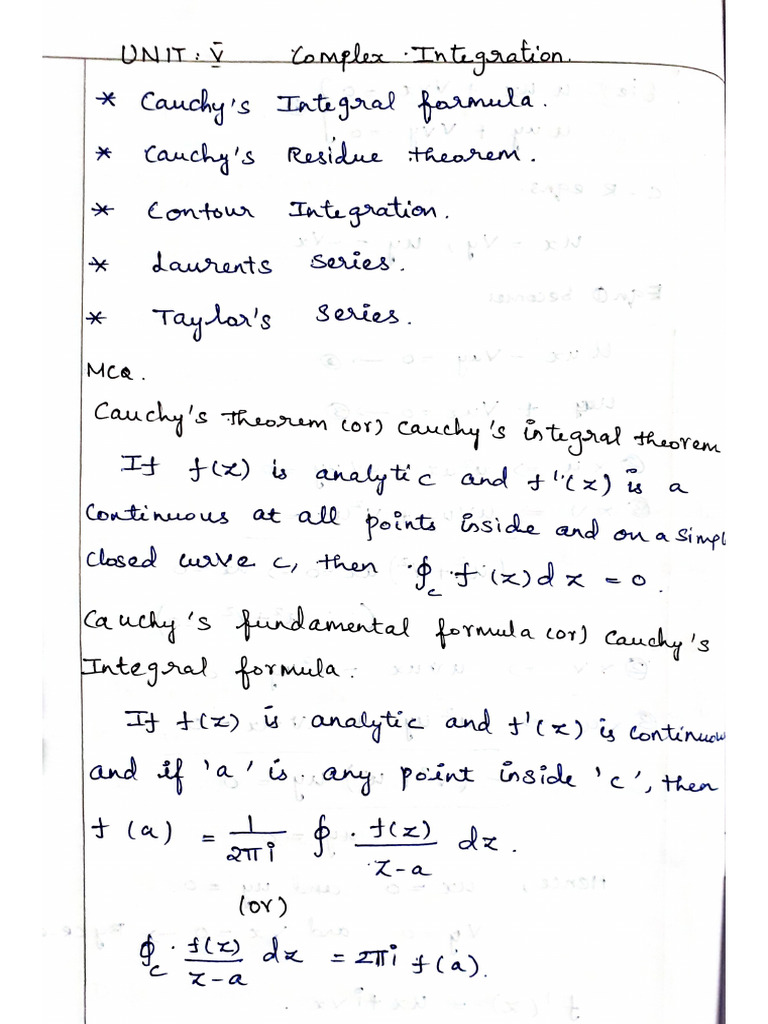 UNIT: V Complex Integration.
* Cauchy's Integral formula.
* Cauchy's Residue theorem.
* Contour Integration.
* Laurents Series.
* Taylor's Series.
MCQ.
Cauchy's theorem (or) Cauchy's integral theorem
If f(z) is analytic and f'(z) is a
continuous at all points inside and on a simpl
closed curve c, then ∮c f(z)dz = 0.
Cauchy's fundamental formula (or) Cauchy's
Integral formula.
If f(z) is analytic and f'(z) is continuou
and if 'a' is any point inside 'c', then
f(a) = 1/2πi ∮ f(z)/z-a dz.
(or)
∮c f(z)/z-a dz = 2πi f(a).